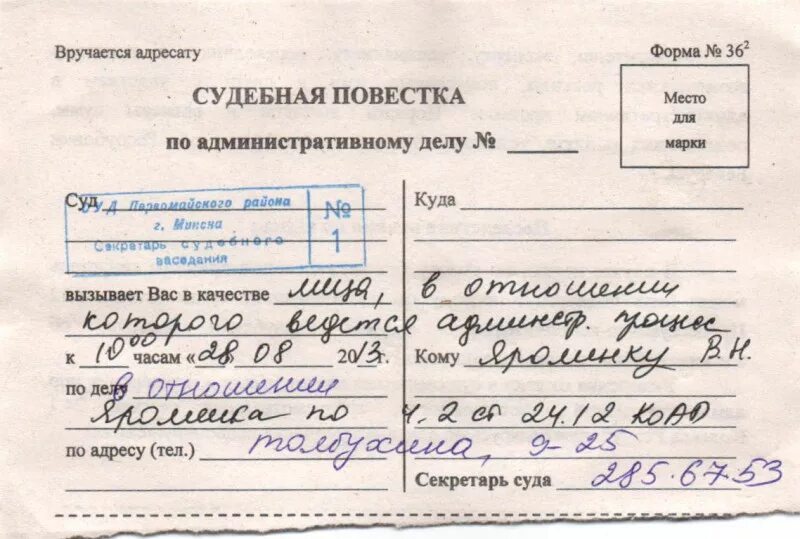 Вручается адресату
Форма № 36²
СУДЕБНАЯ ПОВЕСТКА
по административному делу №
Место
для
марки
Суд
СУД Первомайского района
г. Минска
Секретарь судебного
заседания
№
1
Куда
вызывает Вас в качестве лица, в отношении
которого ведется админстр. процес
к 10⁰⁰ часам «28» 08 2013г.
Кому Яроминку В.Н.
по делу в отношении
Яроминка по ч. 2 ст 24.12 КоАП
по адресу (тел.) Толбухина, 9-25
Секретарь суда 285-67-53